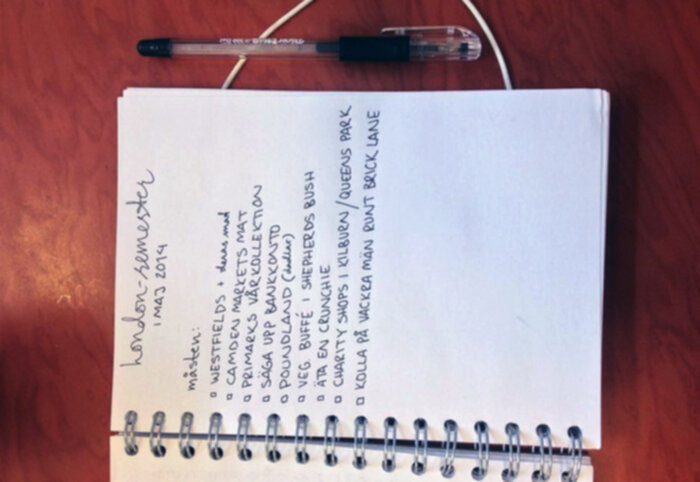 london-semester
1 MAJ 2014
måsten:
WESTFIELDS + deras mat
CAMDEN MARKETS MAT
PRIMARKS VÅRKOLLEKTION
SÄGA UPP BANKKONTO
POUNDLAND (dudlar)
VEG. BUFFÉ I SHEPHERDS BUSH
ÄTA EN CRUNCHIE
CHARITY SHOPS I KILBURN/QUEENS PARK
KOLLA PÅ VACKRA MÄN RUNT BRICK LANE